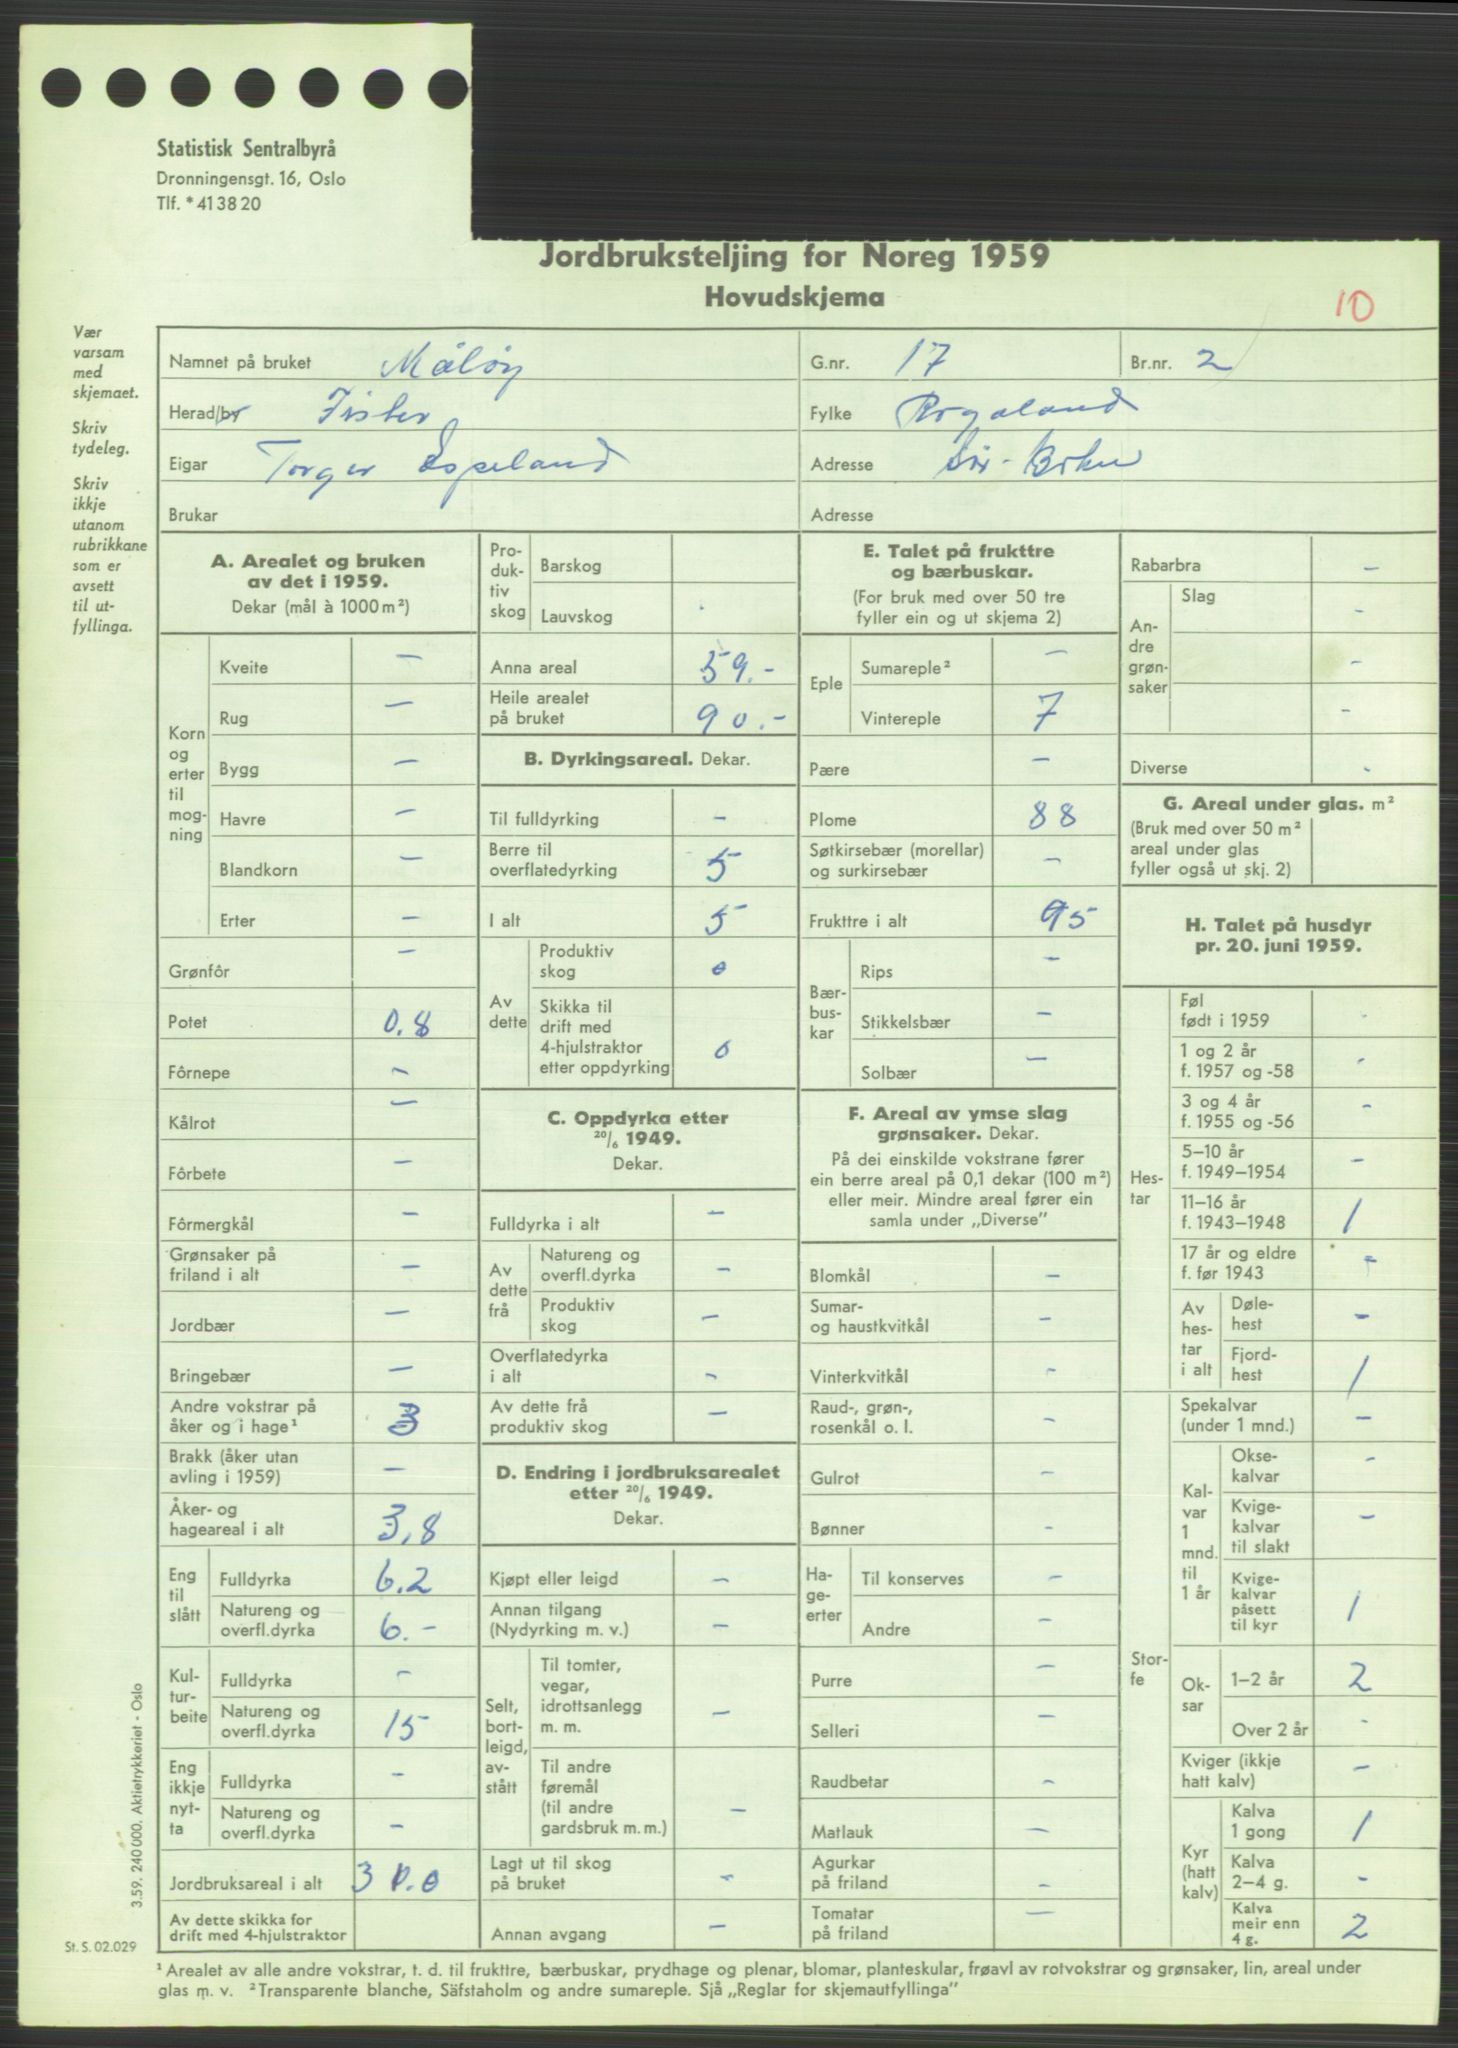 Statistisk Sentralbyrå
Dronningensgt. 16, Oslo
Tlf. * 41 38 20
Jordbruksteljing for Noreg 1959
Hovudskjema
10
Vær
varsam
med
skjemaet.
Skriv
tydeleg.
Skriv
ikkje
utanom
rubrikkane
som er
avsett
til ut-
fyllinga.
Namnet på bruket Måløy G.nr. 17 Br.nr. 2
Herad/by Fister Fylke Rogaland
Eigar Torger Espeland Adresse Sør-
Brukar Adresse
A. Arealet og bruken
av det i 1959.
Dekar (mål à 1000 m²)
Korn
og
erter
til
mog-
ning
Kveite –
Rug –
Bygg –
Havre –
Blandkorn –
Erter –
Grønfôr –
Potet 0.8
Fôrnepe –
Kålrot –
Fôrbete –
Fôrmergkål –
Grønsaker på
friland i alt –
Jordbær –
Bringebær –
Andre vokstrar på
åker og i hage¹ 3
Brakk (åker utan
avling i 1959) –
Åker- og
hageareal i alt 3,8
Eng
til
slått
Fulldyrka 6.2
Natureng og
overfl.dyrka 6.–
Kul-
tur-
beite
Fulldyrka –
Natureng og
overfl.dyrka 15
Eng
ikkje
nyt-
ta
Fulldyrka –
Natureng og
overfl.dyrka –
Jordbruksareal i alt 30.0
Av dette skikka for
drift med 4-hjulstraktor
Pro-
duk-
tiv
skog
Barskog
Lauvskog
Anna areal 59.–
Heile arealet
på bruket 90.–
B. Dyrkingsareal. Dekar.
Til fulldyrking –
Berre til
overflatedyrking 5
I alt 5
Av
dette
Produktiv
skog 0
Skikka til
drift med
4-hjulstraktor
etter oppdyrking 0
C. Oppdyrka etter
20/6 1949.
Dekar.
Fulldyrka i alt –
Av
dette
frå
Natureng og
overfl.dyrka –
Produktiv
skog –
Overflatedyrka
i alt –
Av dette frå
produktiv skog –
D. Endring i jordbruksarealet
etter 20/6 1949.
Dekar.
Kjøpt eller leigd –
Annan tilgang
(Nydyrking m. v.) –
Selt,
bort-
leigd,
av-
stått
Til tomter,
vegar,
idrottsanlegg
m. m. –
Til andre
føremål
(til andre
gardsbruk m. m.) –
Lagt ut til skog
på bruket –
Annan avgang –
E. Talet på frukttre
og bærbuskar.
(For bruk med over 50 tre
fyller ein og ut skjema 2)
Eple
Sumareple² –
Vintereple 7
Pære –
Plome 88
Søtkirsebær (morellar)
og surkirsebær –
Frukttre i alt 95
Bær-
bus-
kar
Rips –
Stikkelsbær –
Solbær –
F. Areal av ymse slag
grønsaker. Dekar.
På dei einskilde vokstrane fører
ein berre areal på 0,1 dekar (100 m²)
eller meir. Mindre areal fører ein
samla under „Diverse”
Blomkål –
Sumar-
og haustkvitkål –
Vinterkvitkål –
Raud-, grøn-,
rosenkål o. l. –
Gulrot –
Bønner –
Ha-
ge-
erter
Til konserves –
Andre –
Purre –
Selleri –
Raudbetar –
Matlauk –
Agurkar
på friland –
Tomatar
på friland –
Rabarbra –
An-
dre
grøn-
saker
Slag –
–
–
Diverse –
G. Areal under glas. m²
(Bruk med over 50 m²
areal under glas
fyller også ut skj. 2)
H. Talet på husdyr
pr. 20. juni 1959.
Hes-
tar
Føl
født i 1959 –
1 og 2 år
f. 1957 og -58 –
3 og 4 år
f. 1955 og -56 –
5–10 år
f. 1949–1954 –
11–16 år
f. 1943–1948 1
17 år og eldre
f. før 1943 –
Av
hes-
tar
i alt
Døle-
hest –
Fjord-
hest 1
Stor-
fe
Spekalvar
(under 1 mnd.) –
Kal-
var
1
mnd.
til
1 år
Okse-
kalvar –
Kvige-
kalvar
til slakt –
Kvige-
kalvar
påsett
til kyr 1
Ok-
sar
1–2 år 2
Over 2 år –
Kviger (ikkje
hatt kalv) –
Kyr
(hatt
kalv)
Kalva
1 gong 1
Kalva
2–4 g. –
Kalva
meir enn
4 g. 2
3.59. 240 000. Aktietrykkeriet - Oslo
St. S. 02.029
¹ Arealet av alle andre vokstrar, t. d. til frukttre, bærbuskar, prydhage og plenar, blomar, planteskular, frøavl av rotvokstrar og grønsaker, lin, areal under
glas m. v. ² Transparente blanche, Säfstaholm og andre sumareple. Sjå „Reglar for skjemautfyllinga”